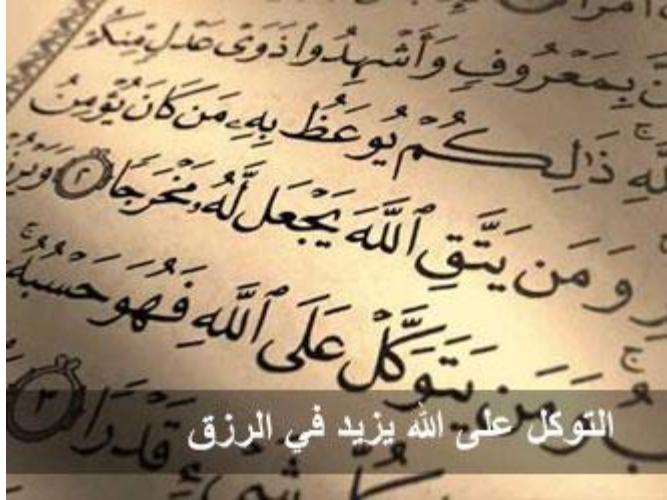 بِمَعْرُوفٍ وَأَشْهِدُوا۟ ذَوَىْ عَدْلٍ مِّنكُمْ
ذَٰلِكُمْ يُوعَظُ بِهِۦ مَن كَانَ يُؤْمِنُ
وَمَن يَتَّقِ ٱللَّهَ يَجْعَل لَّهُۥ مَخْرَجًا ٢
وَمَن يَتَوَكَّلْ عَلَى ٱللَّهِ فَهُوَ حَسْبُهُۥٓ
التوكل على الله يزيد في الرزق
قَدْرًا ٣